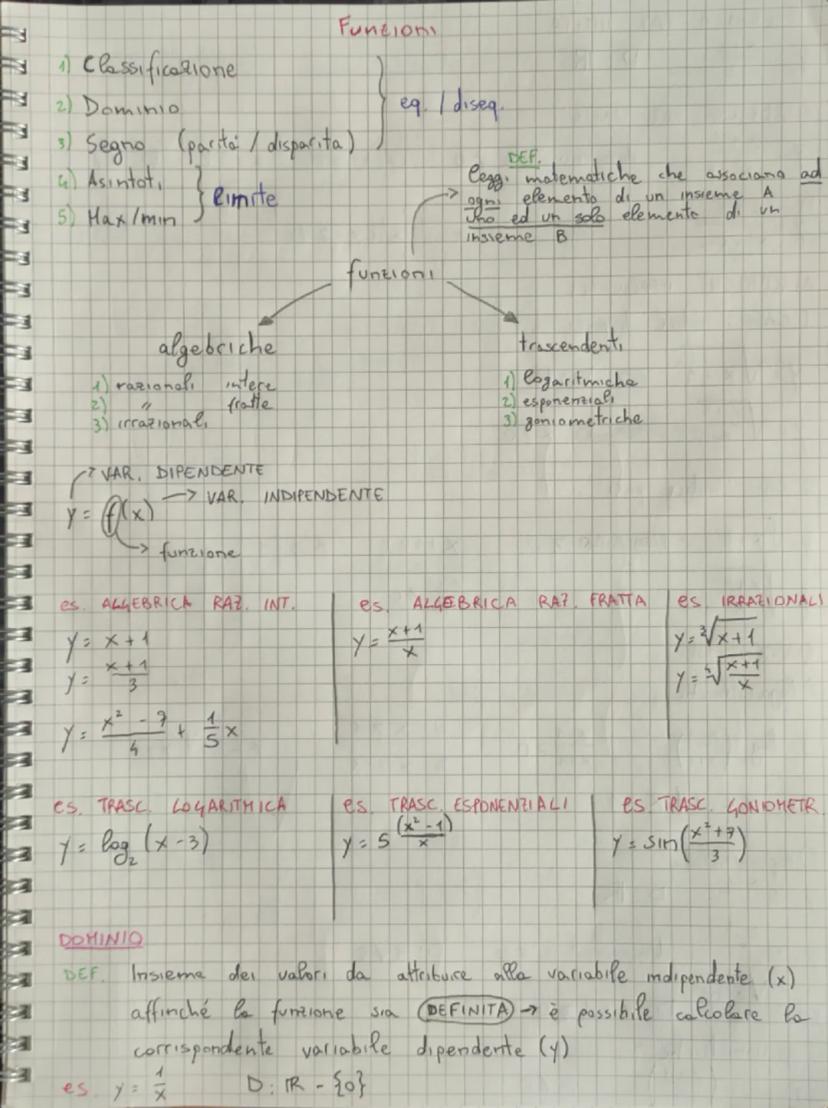 Funzioni
1) Classificazione
2) Dominio
3) Segno (parità / disparità)
eq. / diseq.
4) Asintoti
5) Max/min
limite
DEF.
leggi matematiche che associano ad
ogni elemento di un insieme A
uno ed un solo elemento di un
insieme B
funzioni
algebriche
1) razionali intere
2) " fratte
3) irrazionali
trascendenti
1) logaritmiche
2) esponenziali
3) goniometriche
→ VAR. DIPENDENTE
y = f(x) → VAR. INDIPENDENTE
→ funzione
es. ALGEBRICA RAZ. INT.
y = x + 1
y = (x+1)/3
y = (x² - 7)/4 + 1/5 x
es. ALGEBRICA RAZ. FRATTA
y = (x+1)/x
es. IRRAZIONALI
y = ³√(x+1)
y = √((x+1)/x)
es. TRASC. LOGARITMICA
y = log₂ (x - 3)
es. TRASC. ESPONENZIALI
y = 5^((x² - 1)/x)
es. TRASC. GONIOMETR.
y = sin((x² + 7)/3)
DOMINIO
DEF. Insieme dei valori da attribuire alla variabile indipendente (x)
affinché la funzione sia DEFINITA → è possibile calcolare la
corrispondente variabile dipendente (y)
es. y = 1/x D: ℝ - {0}